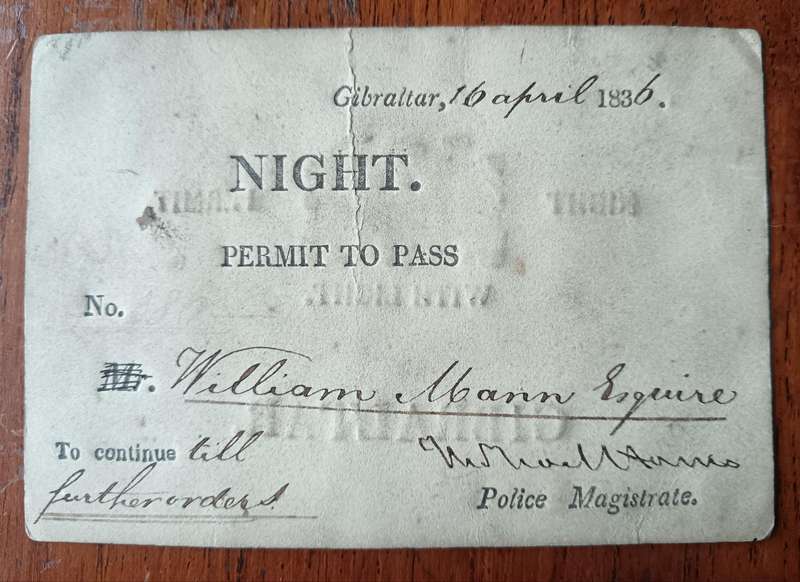 Gibraltar, 16 april 1836.
NIGHT.
PERMIT TO PASS
No.
Mr. William Mann Esquire
To continue till
further orders.
Police Magistrate.